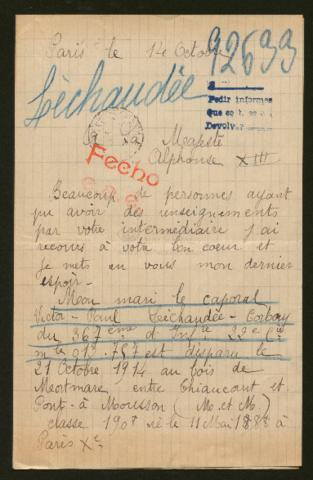 Paris le 12 Octobre
92699
Léchaudée
Pedir informes
Devolver
Sa Majesté
Alphonse XIII
Fecho
Beaucoup de personnes ayant
pu avoir des enseignements
par votre intermédiaire j'ai
recours à votre bon coeur et
je mets en vous mon dernier
espoir -
Mon mari le caporal
Victor - Paul Léchaudée - Corbay
du 367 ème d'Infie 22e Cie
mle 013.757 est disparu le
21 Octobre 1914 au bois de
Mortmare entre Thiaucourt et
Pont-à Mousson (M. et M.)
classe 1907 né le 11 Mai 1888 à
Paris Xe